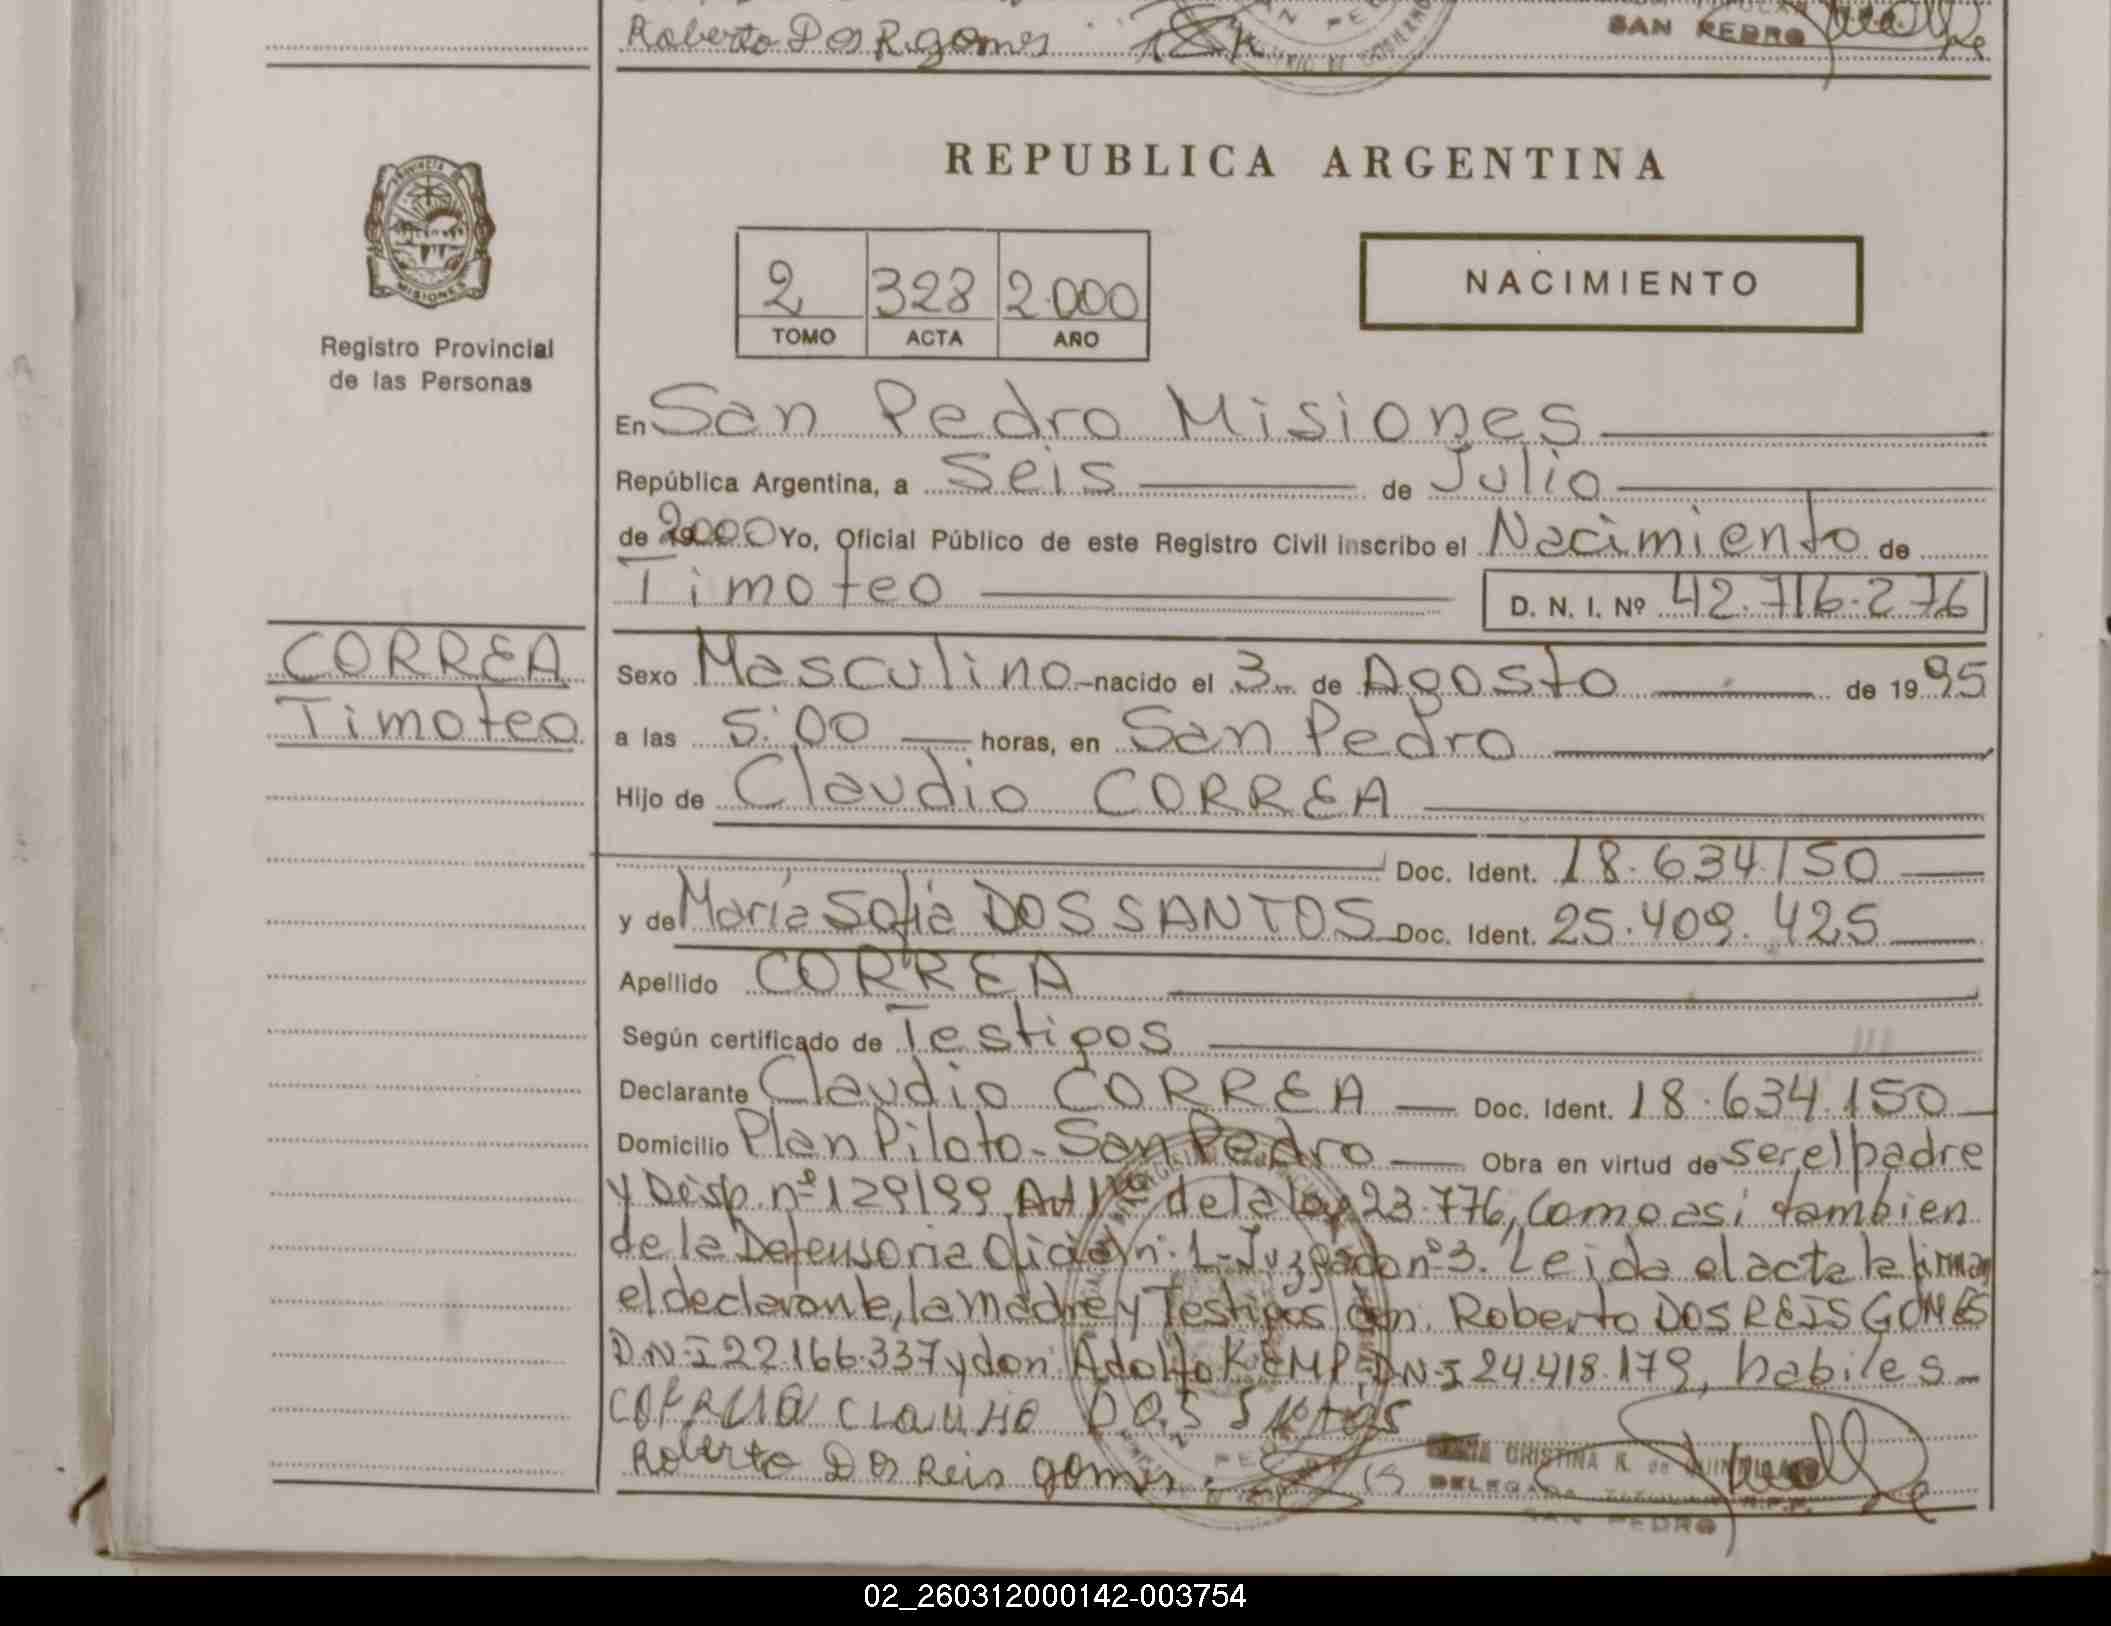 Roberto Dos R. gomes
SAN PEDRO
REPUBLICA ARGENTINA
PROVINCIA D
MISIONES
Registro Provincial
de las Personas
2 328 2.000
TOMO ACTA AÑO
NACIMIENTO
En San Pedro Misiones
República Argentina, a Seis de Julio
de 2000 Yo, Oficial Público de este Registro Civil inscribo el Nacimiento de
Timoteo D. N. I. Nº 42.716.276
CORREA
Timoteo
Sexo Masculino nacido el 3 de Agosto de 1995
a las 5:00 horas, en San Pedro
Hijo de Claudio CORREA
Doc. Ident. 18.634.150
y de María Sofia DOS SANTOS Doc. Ident. 25.409.425
Apellido CORREA
Según certificado de Testigos
Declarante Claudio CORREA Doc. Ident. 18.634.150
Domicilio Plan Piloto - San Pedro Obra en virtud de ser el padre
y Disp. nº 129/99 Art 11º de la ley 23.776, como asi tambien
de la Defensoria Oficial nº 1 - Juzgado nº 3. Leida el acta la firman
el declarante, la madre y Testigos don: Roberto DOS REIS GOMES
D.N.I 22.166.337 y don: Adolfo KEMP, D.N.I 24.418.179, habiles
CORREA CLAUDIO DOS SANTOS
Roberto Dos Reis gomes
CRISTINA R. de QUINTULAN
DELEGADA TITULAR R.P.P.
SAN PEDRO
02_260312000142-003754